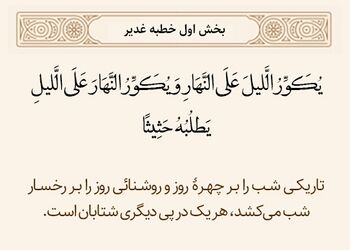 بخش اول خطبه غدیر
یُکَوِّرُ الَّلیلَ عَلَی النَّهارِ وَ یُکَوِّرُ النَّهارَ عَلَی الَّلیلِ
یَطلُبُهُ حَثِیثًا
تاریکی شب را بر چهرهٔ روز و روشنائی روز را بر رخسار
شب می‌کشد، هر یک در پی دیگری شتابان است.